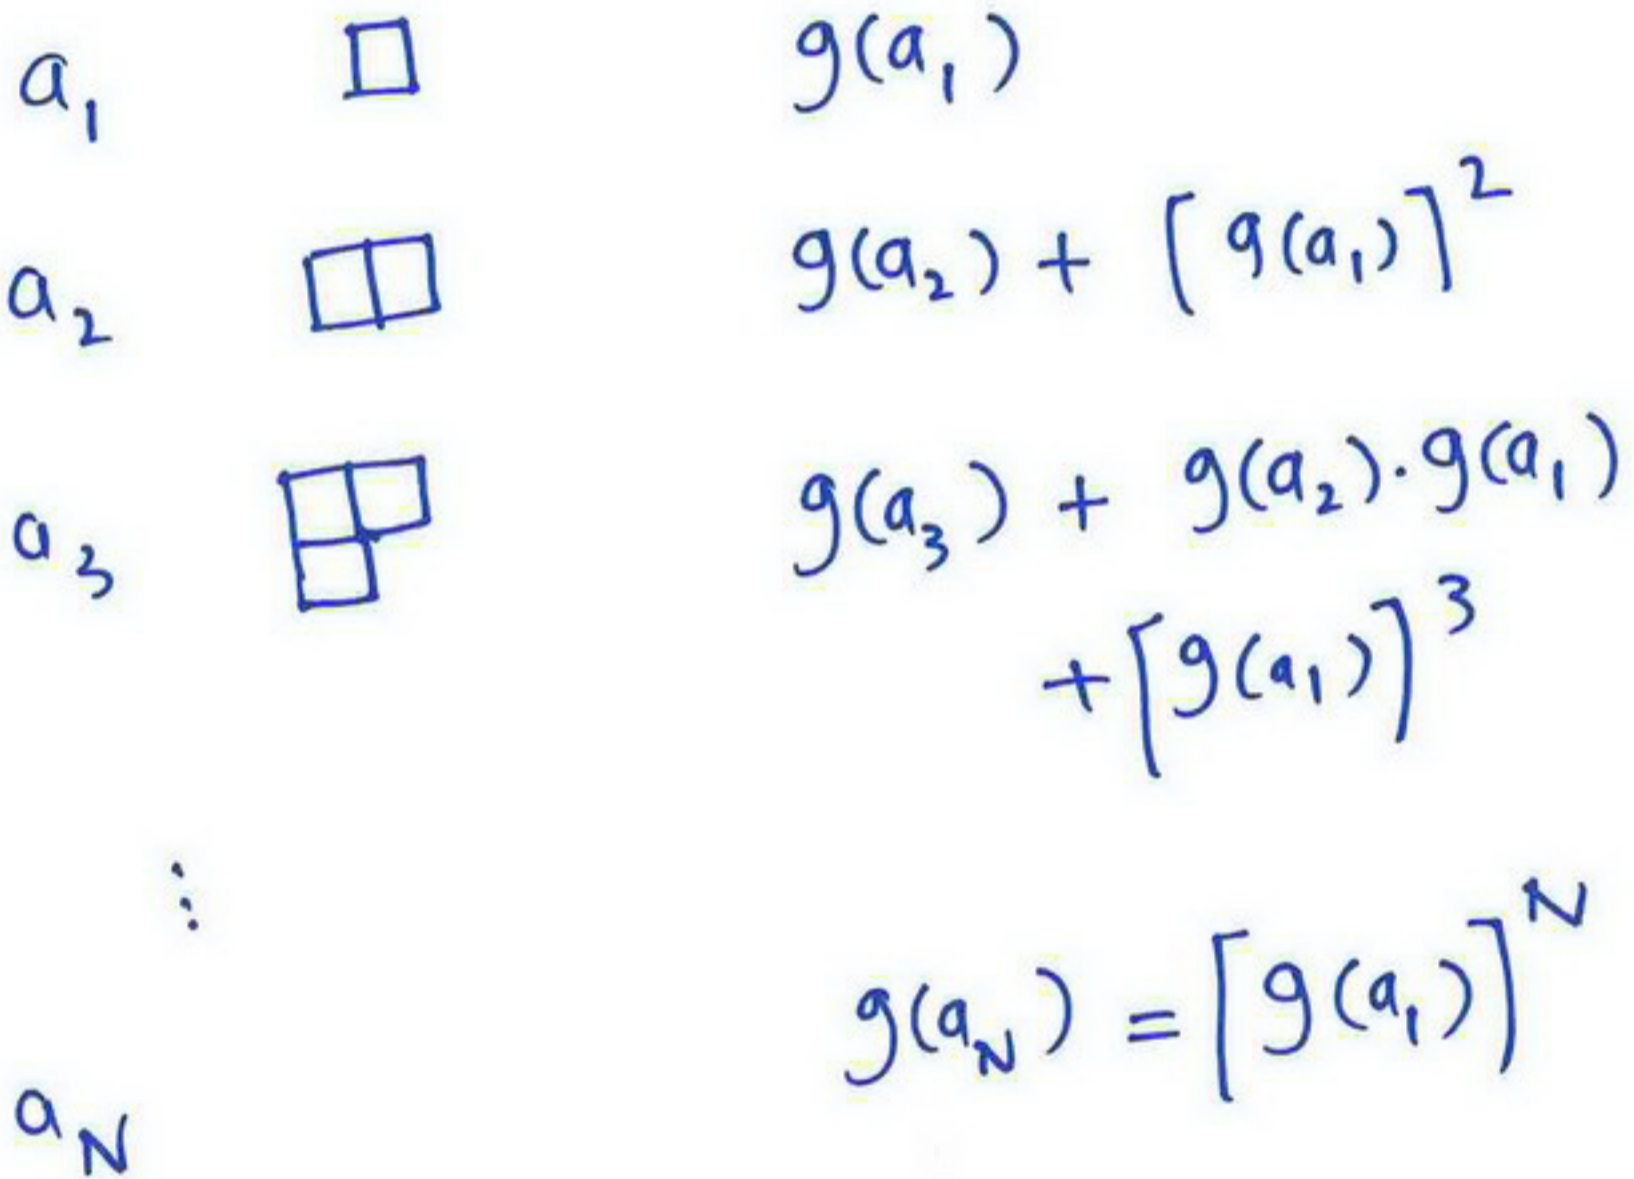 a₁ g(a₁)
a₂ g(a₂) + [g(a₁)]²
a₃ g(a₃) + g(a₂)·g(a₁)
+ [g(a₁)]³
⋮
g(a_N) = [g(a₁)]^N
a_N